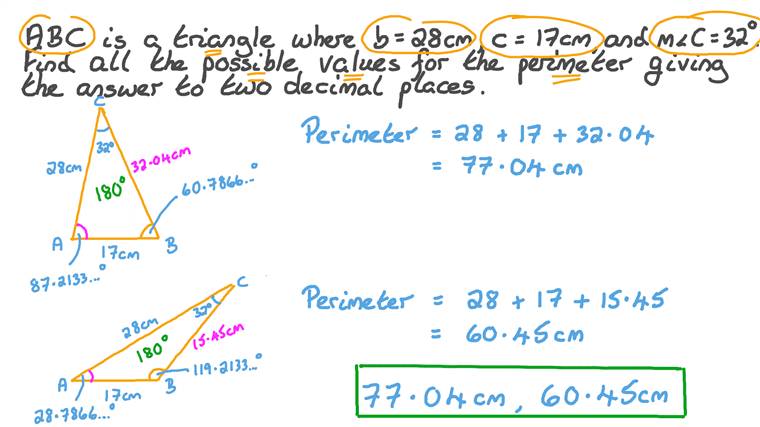 ABC is a triangle where b = 28cm, c = 17cm, and m∠C = 32°.
Find all the possible values for the perimeter giving
the answer to two decimal places.
C
32°
28cm
32.04cm
180°
60.7866...°
A
B
17cm
87.2133...°
Perimeter = 28 + 17 + 32.04
= 77.04 cm
C
32°
28cm
15.45cm
180°
119.2133...°
A
B
17cm
28.7866...°
Perimeter = 28 + 17 + 15.45
= 60.45cm
77.04cm, 60.45cm